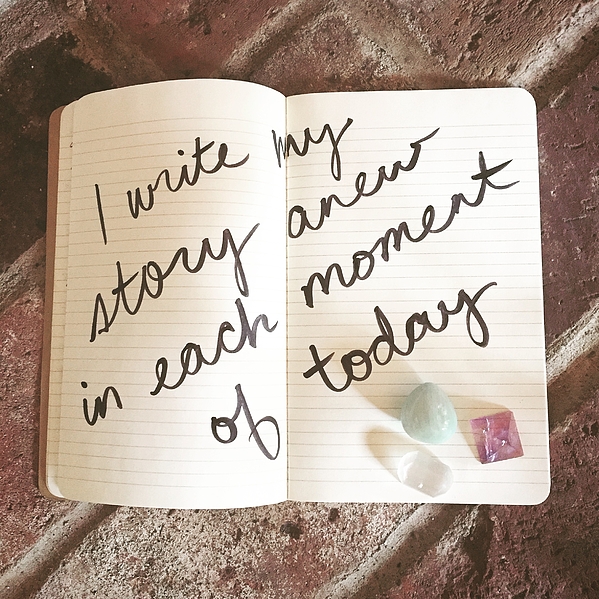 I write my
story anew
in each moment
of today